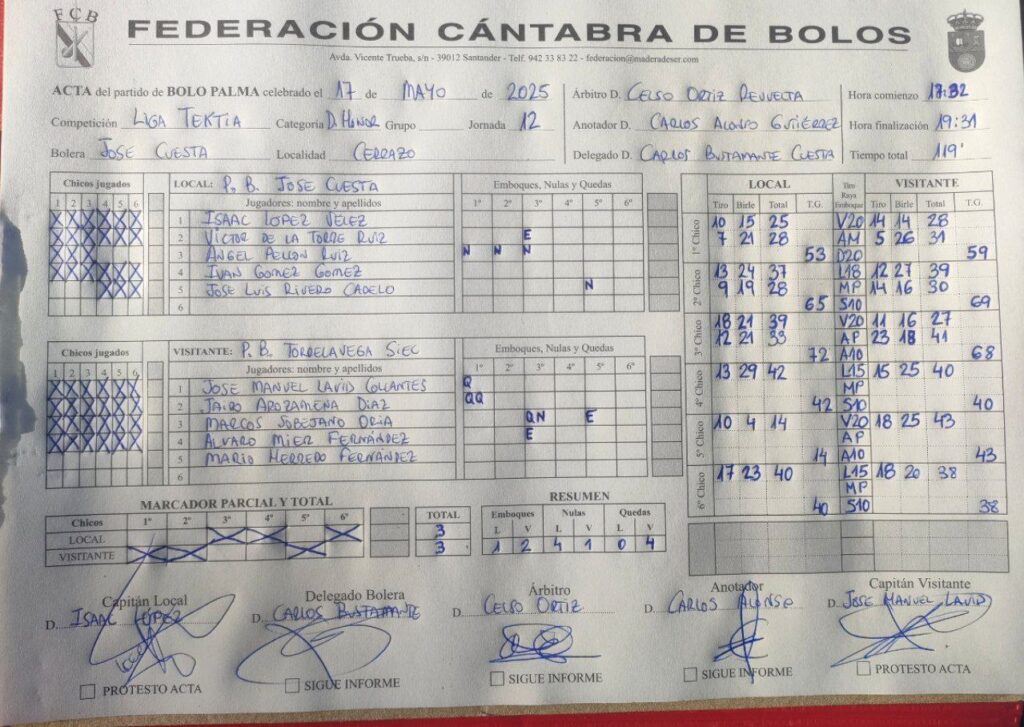 FCB
FEDERACIÓN CÁNTABRA DE BOLOS
Avda. Vicente Trueba, s/n - 39012 Santander - Telf. 942 33 83 22 - federacion@maderadeser.com
ACTA del partido de BOLO PALMA celebrado el 17 de MAYO de 2025 Árbitro D. CELSO ORTIZ REVUELTA Hora comienzo 17:32
Competición LIGA TERTIA Categoría D. HONOR Grupo Jornada 12 Anotador D. CARLOS ALONSO GUTIÉRREZ Hora finalización 19:31
Bolera JOSE CUESTA Localidad CERRAZO Delegado D. CARLOS BUSTAMANTE CUESTA Tiempo total 119'
Chicos jugados LOCAL: P. B. JOSE CUESTA Emboques, Nulas y Quedas
1 2 3 4 5 6 Jugadores: nombre y apellidos 1º 2º 3º 4º 5º 6º
1 ISAAC LOPEZ VELEZ
2 VICTOR DE LA TORRE RUIZ E
3 ANGEL PELLON RUIZ N N N
4 IVAN GOMEZ GOMEZ
5 JOSE LUIS RIVERO CADELO N
6
Chicos jugados VISITANTE: P. B. TORRELAVEGA SIEC Emboques, Nulas y Quedas
1 2 3 4 5 6 Jugadores: nombre y apellidos 1º 2º 3º 4º 5º 6º
1 JOSE MANUEL LAVID COLLANTES Q
2 JAIRO AROZAMENA DIAZ QQ
3 MARCOS SOBEJANO ORIA QN E
4 ALVARO MIER FERNÁNDEZ E
5 MARIO HERRERO FERNÁNDEZ
6
LOCAL Tiro Raya Emboque VISITANTE
Tiro Birle Total T.G. Tiro Birle Total T.G.
1º Chico
10 15 25 V20 14 14 28
7 21 28 AM 5 26 31
53 D20 59
2º Chico
13 24 37 L18 12 27 39
9 19 28 MP 14 16 30
65 S10 69
3º Chico
18 21 39 V20 11 16 27
12 21 33 AP 23 18 41
72 A10 68
4º Chico
13 29 42 L15 15 25 40
MP
42 S10 40
5º Chico
10 4 14 V20 18 25 43
AP
14 A10 43
6º Chico
17 23 40 L15 18 20 38
MP
40 S10 38
MARCADOR PARCIAL Y TOTAL
Chicos 1º 2º 3º 4º 5º 6º TOTAL
LOCAL 3
VISITANTE 3
RESUMEN
Emboques Nulas Quedas
L V L V L V
1 2 4 1 0 4
Capitán Local Delegado Bolera Árbitro Anotador Capitán Visitante
D. ISAAC LÓPEZ D. CARLOS BUSTAMANTE D. CELSO ORTIZ D. CARLOS ALONSO D. JOSE MANUEL LAVID
PROTESTO ACTA SIGUE INFORME SIGUE INFORME SIGUE INFORME PROTESTO ACTA